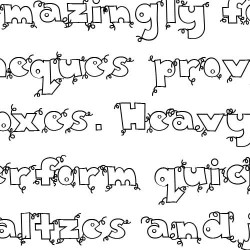 mazingly f
eques prov
oxes. Heavy
erform quic
altzes and j